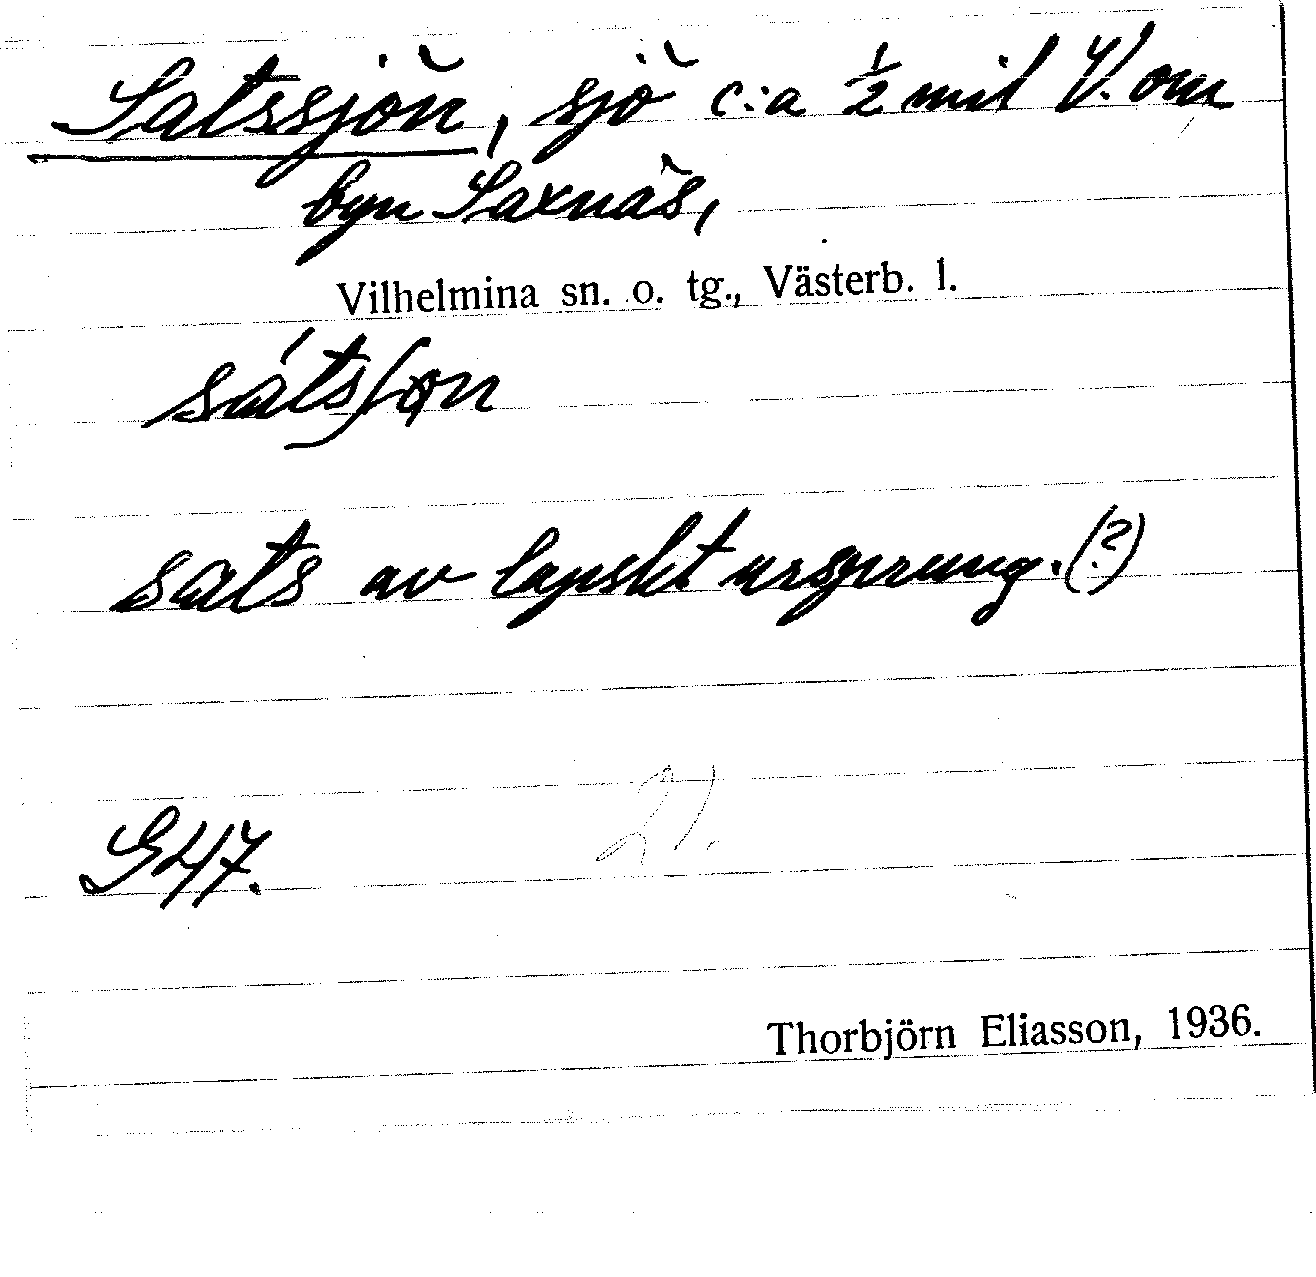 Satssjön, sjö c:a ½ mil V. om
byn Saxnäs,
Vilhelmina sn. o. tg., Västerb. l.
sats av lapskt ursprung. (?)
G47.
Thorbjörn Eliasson, 1936.